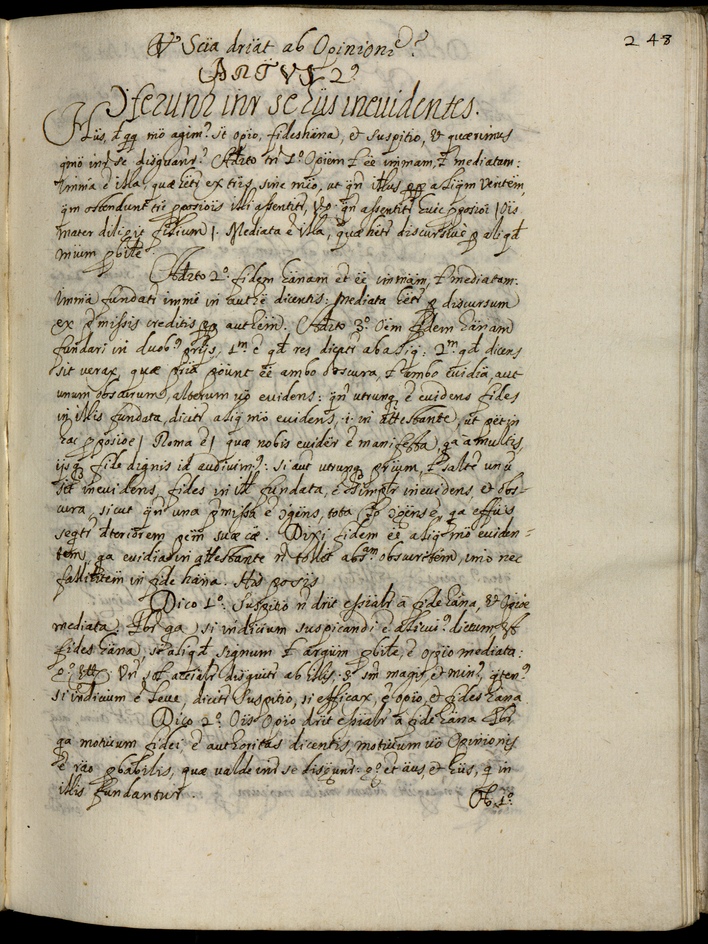 248
Vᵐ Scia driat ab Opinione?
ARTUS 2º
Differunt inr se hijs inevidentes.
Hijs, modo agimˢ. st opio, fides hana, et suspitio, et quærimus
qmo int se distinguanr? Adrto 1º Opiem ee immam, mediatam:
Imma e illa, quæ hetr ex tris, sine mo, ut qn illius aliqm veritem,
qm ostendunt tri pposiois illi assentitr, qn assentitr huic pposioi | Ois
mater diligit filium |. Mediata e illa, quæ hetr discursive p aliqd
mium pbile.
Adrto 2º. fidem hanam et ee immam, mediatam:
Imma fundatr imme in authe dicentis: Mediata hetr p discursum
ex pmissis creditis pp authem. Adrto 3º Oem fidem hanam
fundari in duobˢ prijs, 1m e qd res dicatr ab aliq: 2m qd dicens
sit verax, quæ pria pount ee ambo obscura, ambo evidia, aut
unum obscurum, alterum vo evidens: qn utrumq e evidens fides
in illis fundata, dicitr aliq mo evidens, .i. in attestante, ut pet in
hac pposioe | Roma e | quæ nobis evidr e manifesta, qa a multis,
ijsq fide dignis id audivimˢ: si aut utrumq prium, saltem unu
sit inevidens, fides in illis fundata, e simplr inevidens, et obs-
cura, sicut qn una pmissa e ogens, tota o e ogens, qa effus
seqtr deteriorem pem suæ cæ. Dixi fidem ee aliq mo eviden=
tem, qa evidia in attestante n tollit absm obscuritem, imo nec
fallitem in fide hana. His positis
Dico 1º. Suspitio n drit essialr a fide hana, et Opioe
mediata. Pbr qa, si indicium suspicandi e alicuiˢ dictum,
fides hana, si aliqd signum argum pbile, e opio mediata:
Vn sol accialr distinguitr ab illis, s. sm magis et minˢ, qtenˢ
si indicium e leve, dicitr suspitio, si efficax, e opio, et fides hana.
Dico 2º. Ois Opio drit essialr a fide hana Pbr
qa motivum fidei e authoritas dicentis, motivum vo Opinionis
e rao pbabilis, quæ valde inr se distinguntr: et aus, et hus, q in
illis fundantur.
Ob 1º.